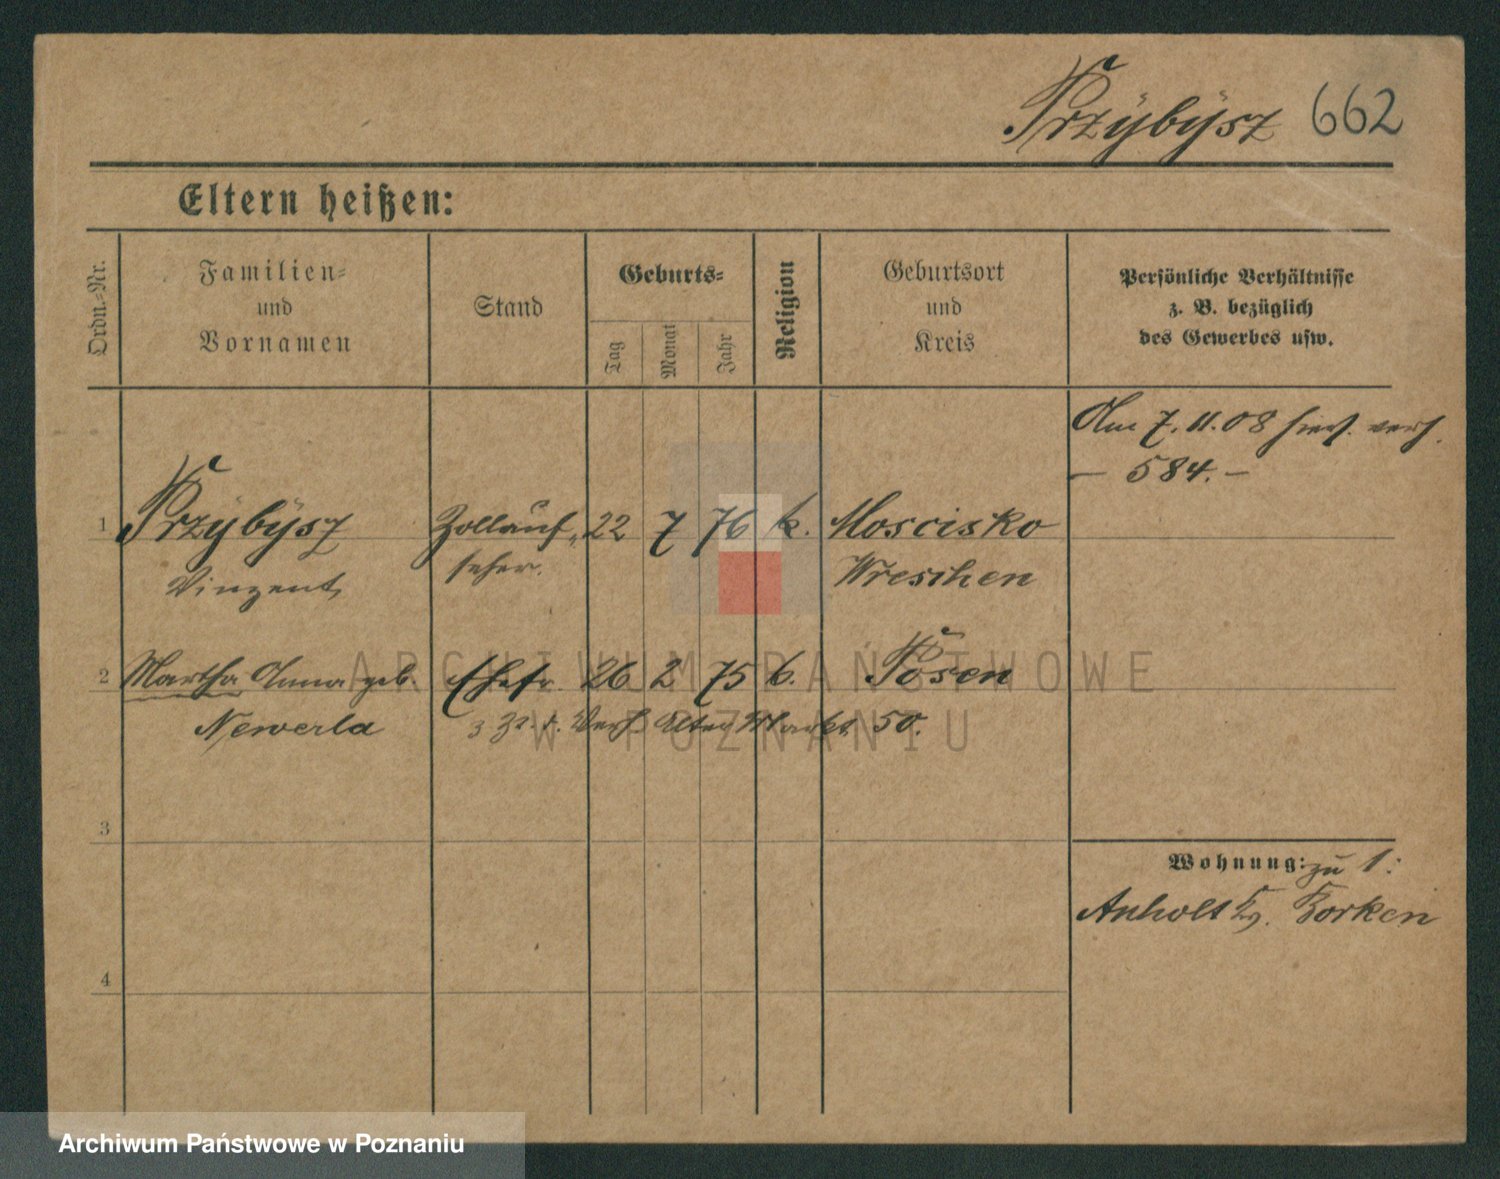 Przÿbÿsz 662
Eltern heißen:
Ordn.-Nr.
Familien-
und
Vornamen
Stand
Geburts-
Tag
Monat
Jahr
Religion
Geburtsort
und
Kreis
Persönliche Verhältnisse
z. B. bezüglich
des Gewerbes usw.
Am 7.11.08 hies. verh.
— 584. —
1 Przÿbÿsz Zollauf„ 22 7 76 k. Moscisko
Vinzent seher. Wreschen
2 Martha Anna geb. Ehefr. 26 2 75 k. Posen
Newerla z. Zt. d. Verh. Alter Markt 50.
3
Wohnung: zu 1:
Anholt Borken
4
ARCHIWUM PAŃSTWOWE
W POZNANIU
Archiwum Państwowe w Poznaniu